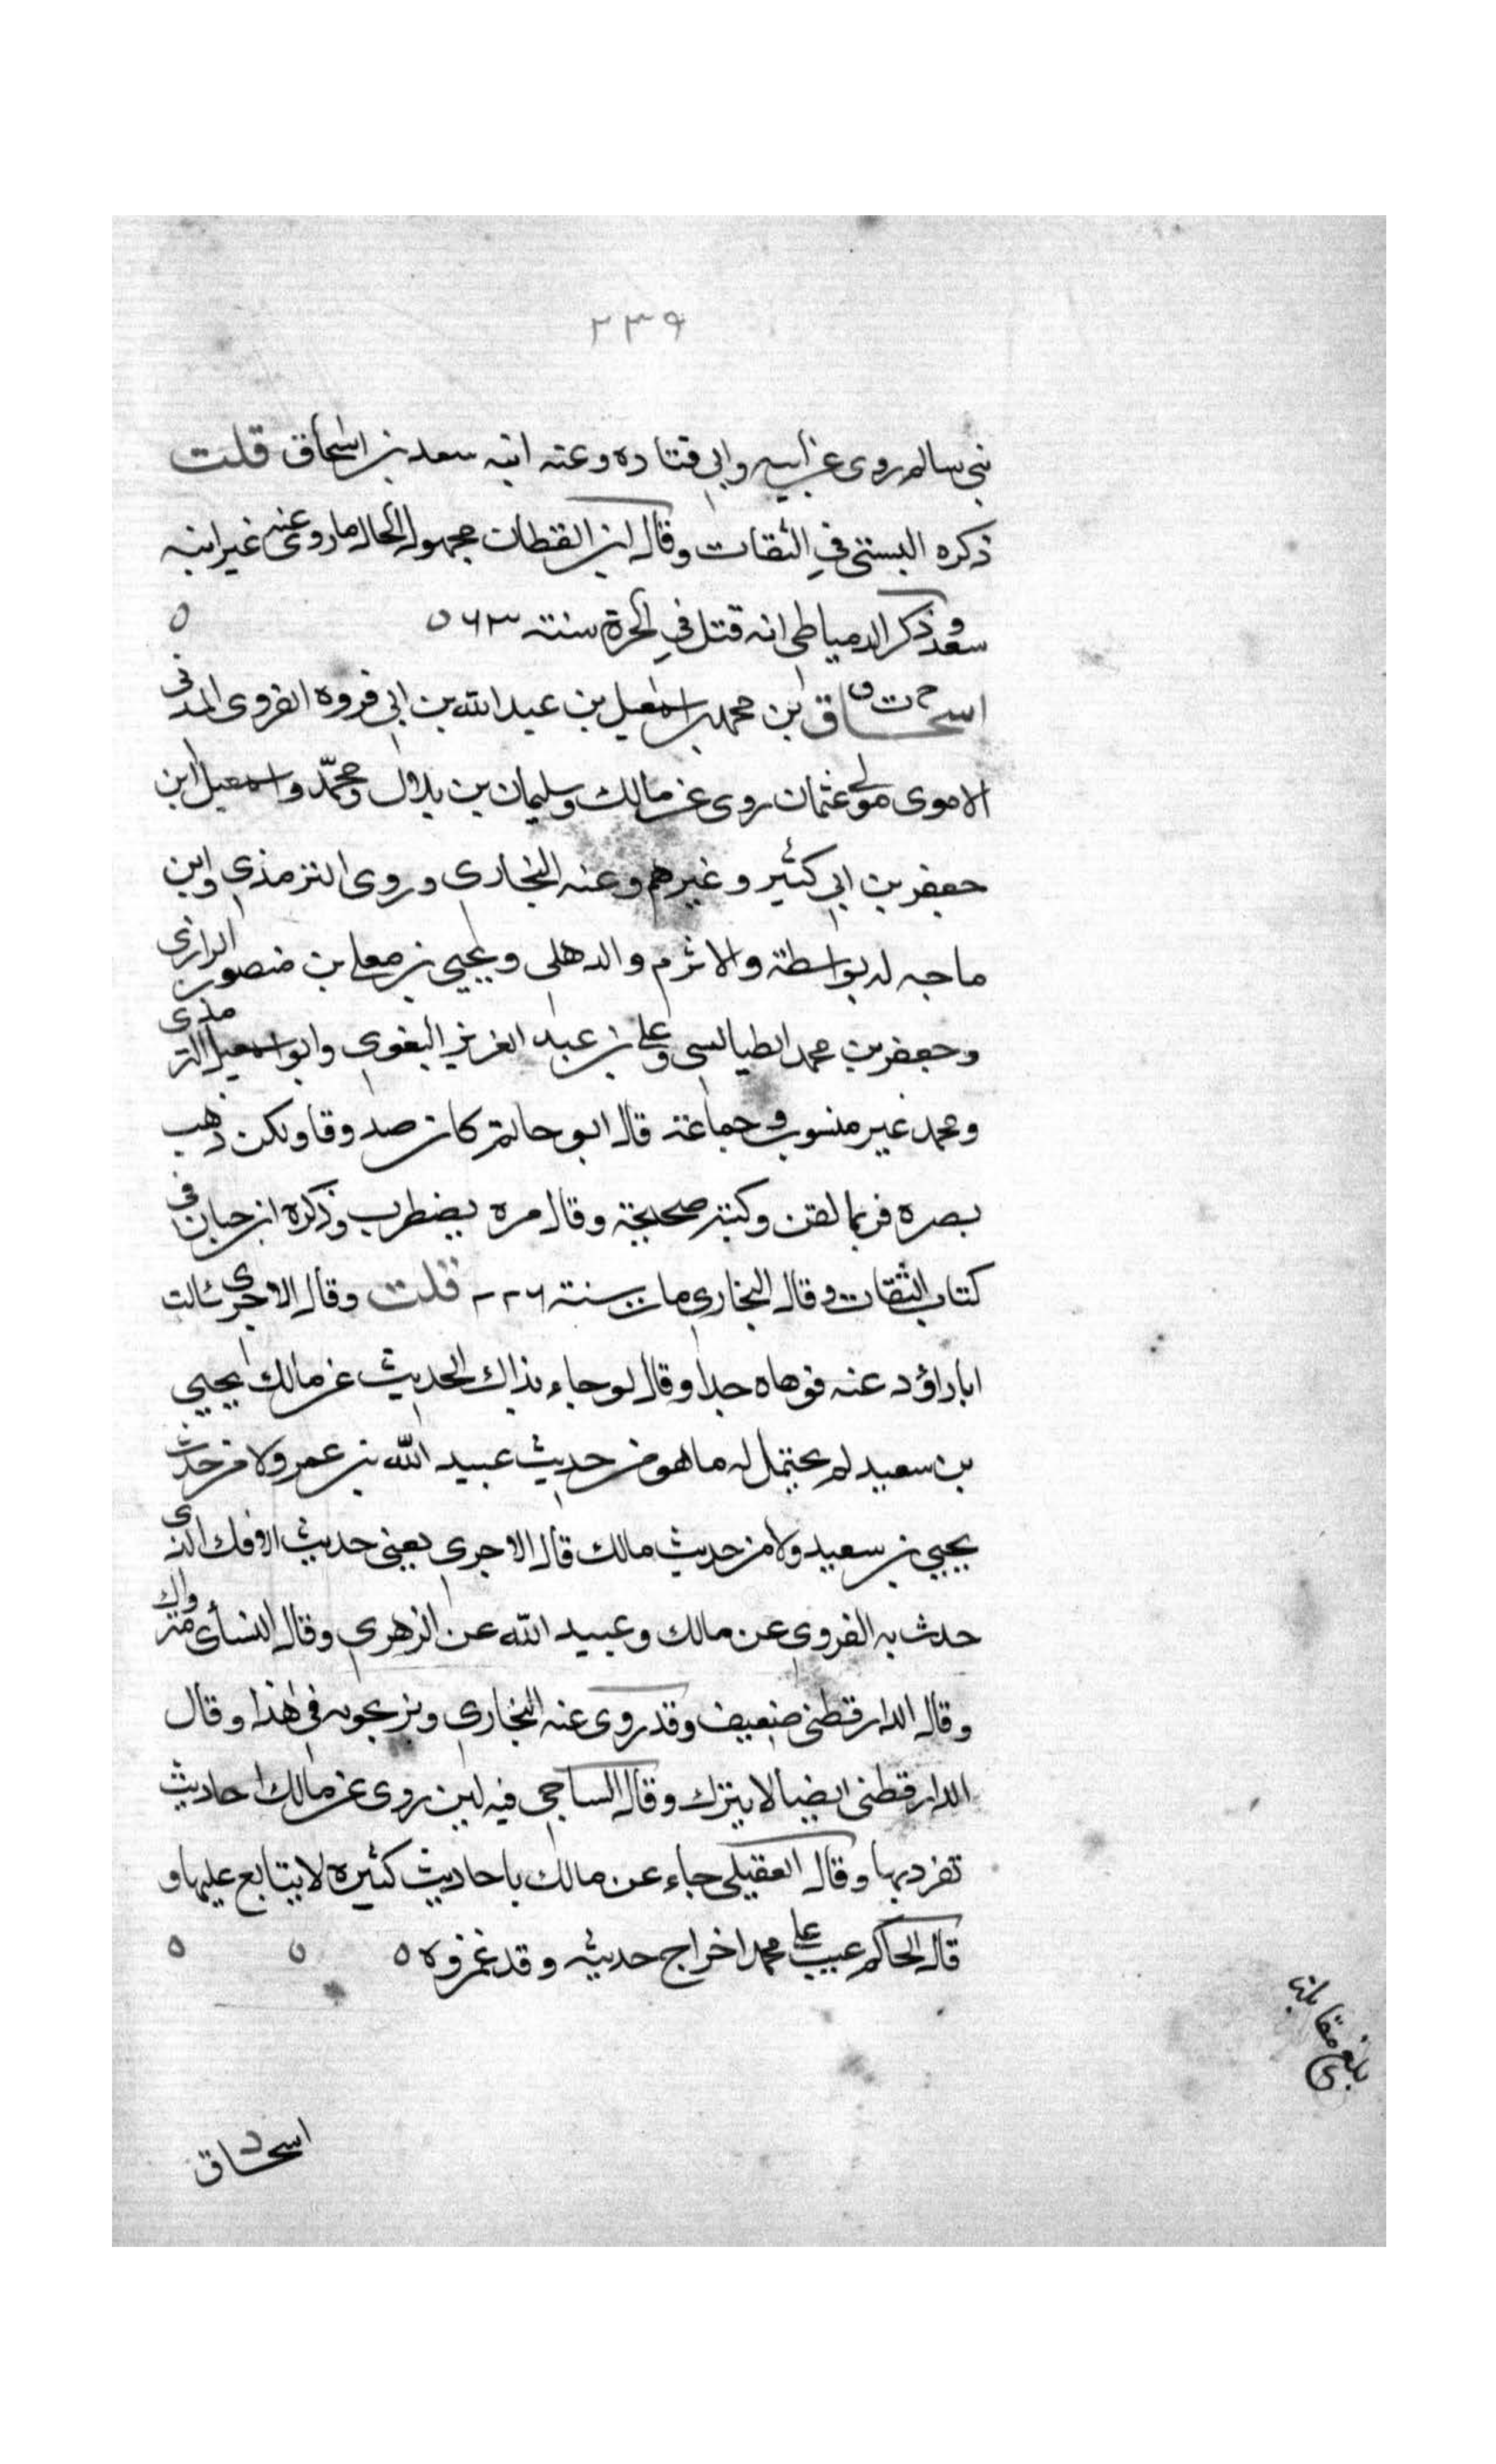 ٢٣٩
بني سالم روى عن ابيه وابي قتاده وعنه ابنه سعد بن اسحاق قلت
ذكره البستي في الثقات وقال ابن القطان مجهول الحال ما روى عنه غير ابنه
سعد وذكر الدمياطي انه قتل في الحرة سنة ٦٣ ه ه
اسحاق بن محمد بن اسمعيل بن عبد الله بن ابي فروه الفروي المدني
الاموي مولى عثمان روى عن مالك وسليمان بن بلال ومحمّد واسمعيل ابن
جعفر بن ابي كثير وغيرهم وعنه البخاري وروى الترمذي وابن
ماجه له بواسطة والاثرم والدهلي ويحيي بن معلى بن منصور الرازي
وجعفر بن محمد الطيالسي وعلي بن عبد العزيز البغوي وابو اسمعيل الترمذي
ومحمد غير منسوب وجماعة قال ابو حاتم كان صدوقا ولكن ذهب
بصره فربما لقن وكتبه صحيحة وقال مره يضطرب وذكره ابن حبان في
كتاب الثقات وقال البخاري مات سنة ٢٢٦ قلت وقال الاجري سالت
ابا داؤد عنه فوهاه جدا وقال لو جاء بذاك الحديث عن مالك يحيي
بن سعيد لم يحتمل له ما هو من حديث عبيد الله بن عمر ولا من حديث
يحيي بن سعيد ولا من حديث مالك قال الاجري يعني حديث الافك الذي
حدث به الفروي عن مالك وعبيد الله عن الزهري وقال النسأي متروك
وقال الدارقطني ضعيف وقد روى عنه البخاري ويوبخونه في هذا وقال
الدارقطني ايضا لا يترك وقال الساجي فيه لين روى عن مالك احاديث
تفرد بها وقال العقيلي جاء عن مالك باحاديث كثيره لا يتابع عليها و
قال الحاكم عيب على محمد اخراج حديثه وقد غمزوه ه ه ه
بلغ مقابلة
اسحاق